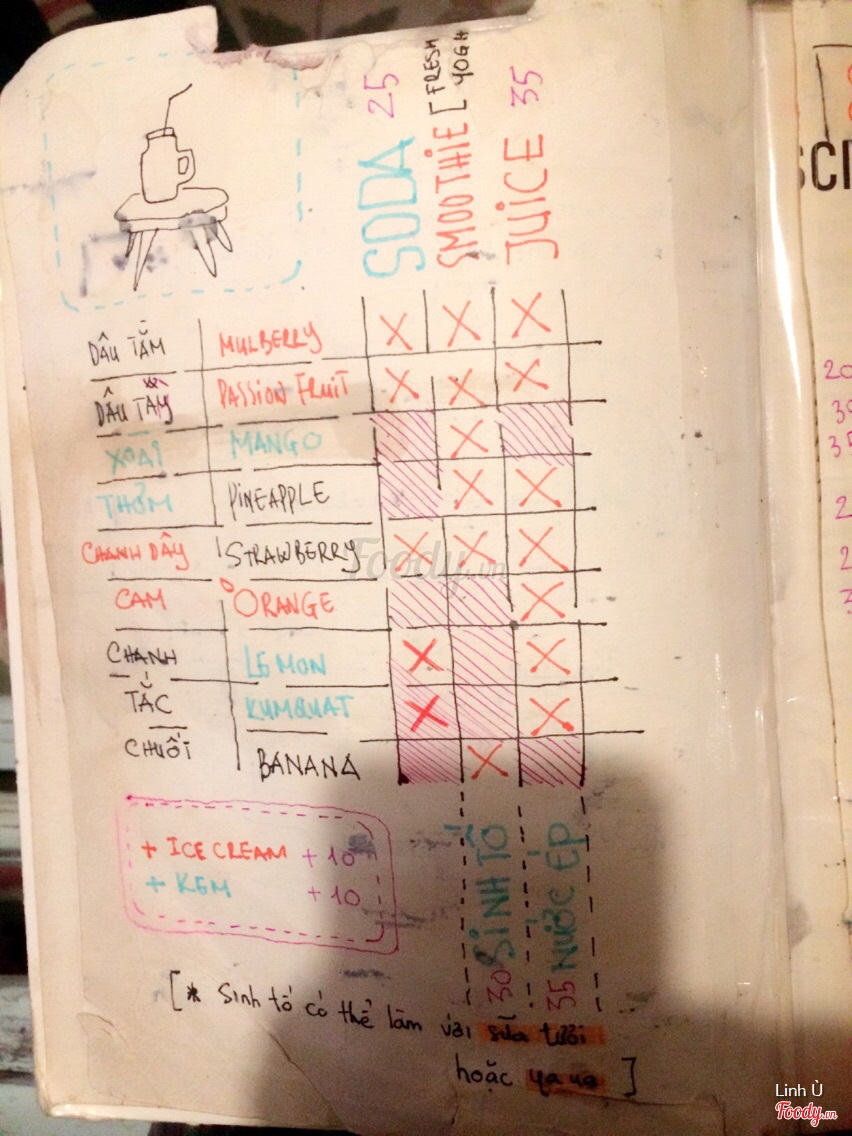 SODA 25
SMOOTHIE [ FRESH
YOGH
JUICE 35
DÂU TẰM MULBERRY X X X
DÂU TÂY PASSION FRUIT X X X
XOÀI MANGO X
THƠM PINEAPPLE X X
CHANH DÂY STRAWBERRY X X X
CAM ORANGE X
CHANH LEMON X X
TẮC KUMQUAT X X
CHUỐI BANANA X
+ ICE CREAM +10
+ KEM +10
30 SINH TỐ
35 NƯỚC ÉP
[* Sinh tố có thể làm với sữa tươi
hoặc ya ua ]
SCI
20
35
Foody.vn
Linh Ủ
Foody.vn